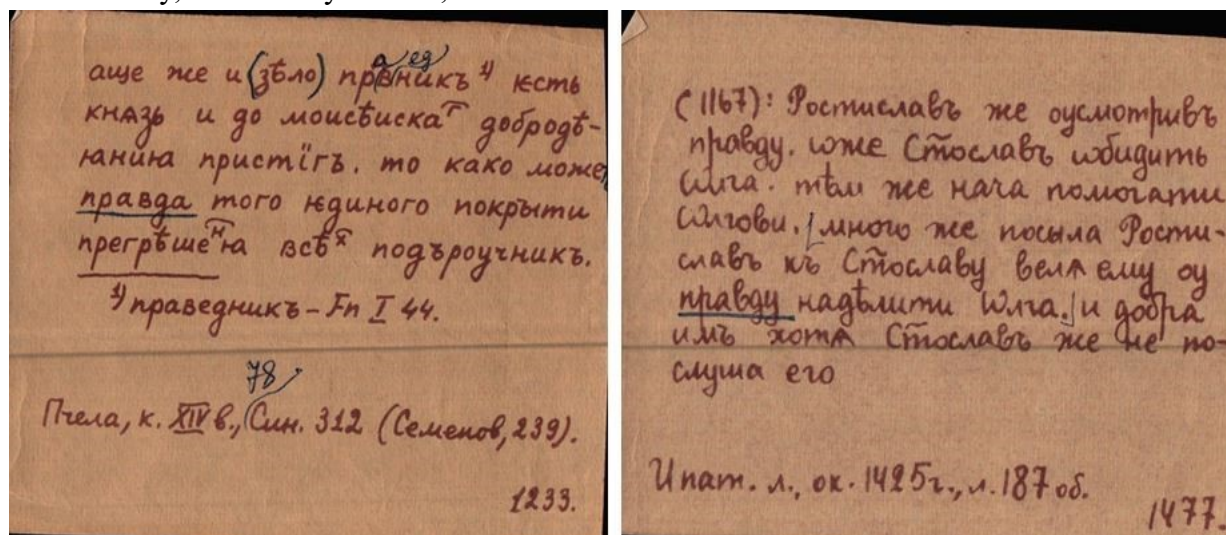 аще же и (зѣло)правникъ ¹⁾ ѥсть
ед
кнѧзь и до моисѣиска г добродѣ-
ꙗниꙗ пристїгъ. то како може
правда того ѥдиного покрыти
прегрѣшенꙗ всѣх подъроучникъ.
¹⁾ праведникъ – Fn I 44.
78
Пчела, к. XIV в., Син. 312 (Семенов, 239).
1233.
(1167): Ростиславъ же оусмотривъ
правду. ѡже Ст҃ославъ ѡбидить
Ѡлга. тѣм же нача помогати
Ѡлгови. [много же посыла Рости-
славъ къ Ст҃ославу велѧ ему оу
правду надѣлити Ѡлга.] и добра
имъ хотѧ Ст҃ославъ же не по-
слуша его
Ипат. л., ок. 1425 г., л. 187 об.
1477.